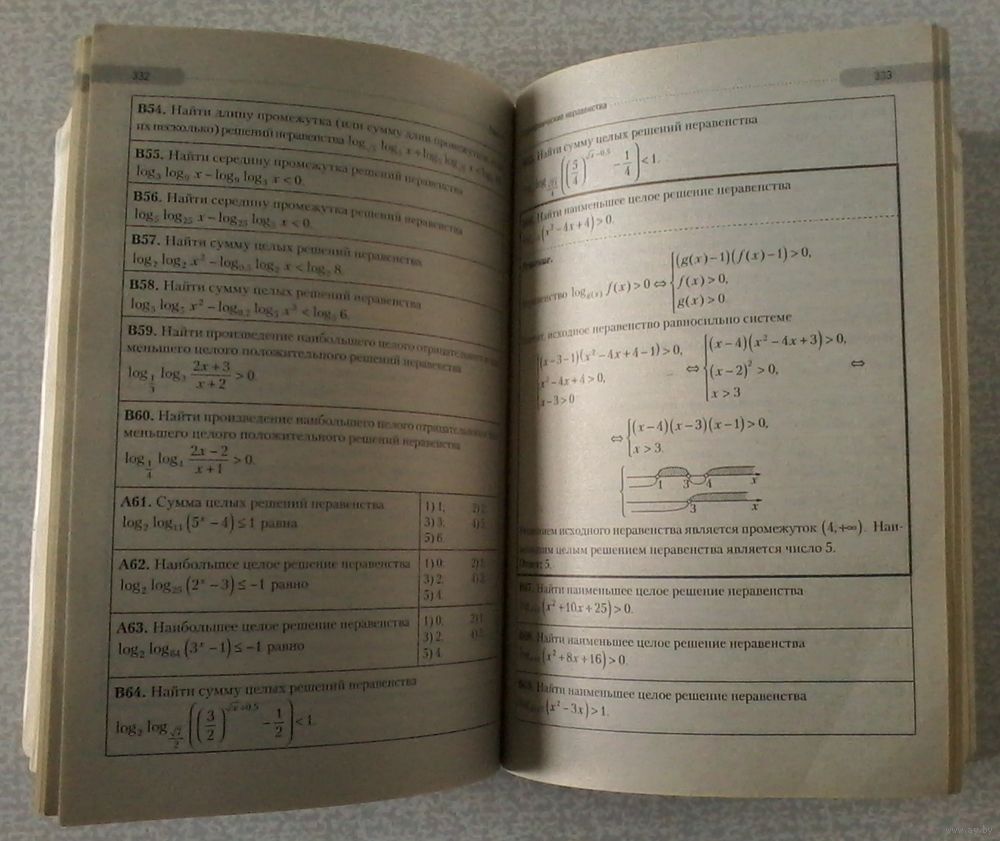 332
B54. Найти длину промежутка (или сумму длин промежутков, если
их несколько) решений неравенства
B55. Найти середину промежутка решений неравенства
log₃ log₉ x − log₉ log₃ x < 0.
B56. Найти середину промежутка решений неравенства
log₅ log₂₅ x − log₂₅ log₅ x < 0.
B57. Найти сумму целых решений неравенства
log₂ log₂ x² − log₀,₅ log₂ x < log₂ 8.
B58. Найти сумму целых решений неравенства
log₅ log₅ x² − log₀,₂ log₅ x³ < log₅ 6.
B59. Найти произведение наибольшего целого отрицательного и
меньшего целого положительного решений неравенства
log_{1/3} log₃ (2x+3)/(x+2) > 0.
B60. Найти произведение наибольшего целого отрицательного
меньшего целого положительного решений неравенства
log_{1/4} log₄ (2x−2)/(x+1) > 0.
A61. Сумма целых решений неравенства
log₂ log₁₁ (5ˣ − 4) ≤ 1 равна
1) 1; 2) 2;
3) 3; 4) 5;
5) 6.
A62. Наибольшее целое решение неравенства
log₂ log₂₅ (2ˣ − 3) ≤ −1 равно
1) 0; 2) 1;
3) 2; 4) 3;
5) 4.
A63. Наибольшее целое решение неравенства
log₂ log₆₄ (3ˣ − 1) ≤ −1 равно
1) 0; 2) 1;
3) 2; 4) 3;
5) 4.
B64. Найти сумму целых решений неравенства
log₂ log_{√7/2} ((3/2)^{√x+0,5} − 1/2) < 1.
333
неравенства
Найти сумму целых решений неравенства
((5/4)^{√x−0,5} − 1/4) < 1.
Найти наименьшее целое решение неравенства
(x² − 4x + 4) > 0.
Решение.
log_{g(x)} f(x) > 0 ⇔ { (g(x)−1)(f(x)−1) > 0,
f(x) > 0,
g(x) > 0.
исходное неравенство равносильно системе
{ (x−3−1)(x²−4x+4−1) > 0, ⇔ { (x−4)(x²−4x+3) > 0, ⇔
x²−4x+4 > 0, (x−2)² > 0,
x−3 > 0 x > 3
⇔ { (x−4)(x−3)(x−1) > 0,
x > 3.
1 3 4 x
3 x
исходного неравенства является промежуток (4,+∞). Наи-
целым решением неравенства является число 5.
Ответ: 5.
Найти наименьшее целое решение неравенства
(x² + 10x + 25) > 0.
Найти наименьшее целое решение неравенства
(x² + 8x + 16) > 0.
Найти наименьшее целое решение неравенства
(x² − 3x) > 1.
www.ay.by